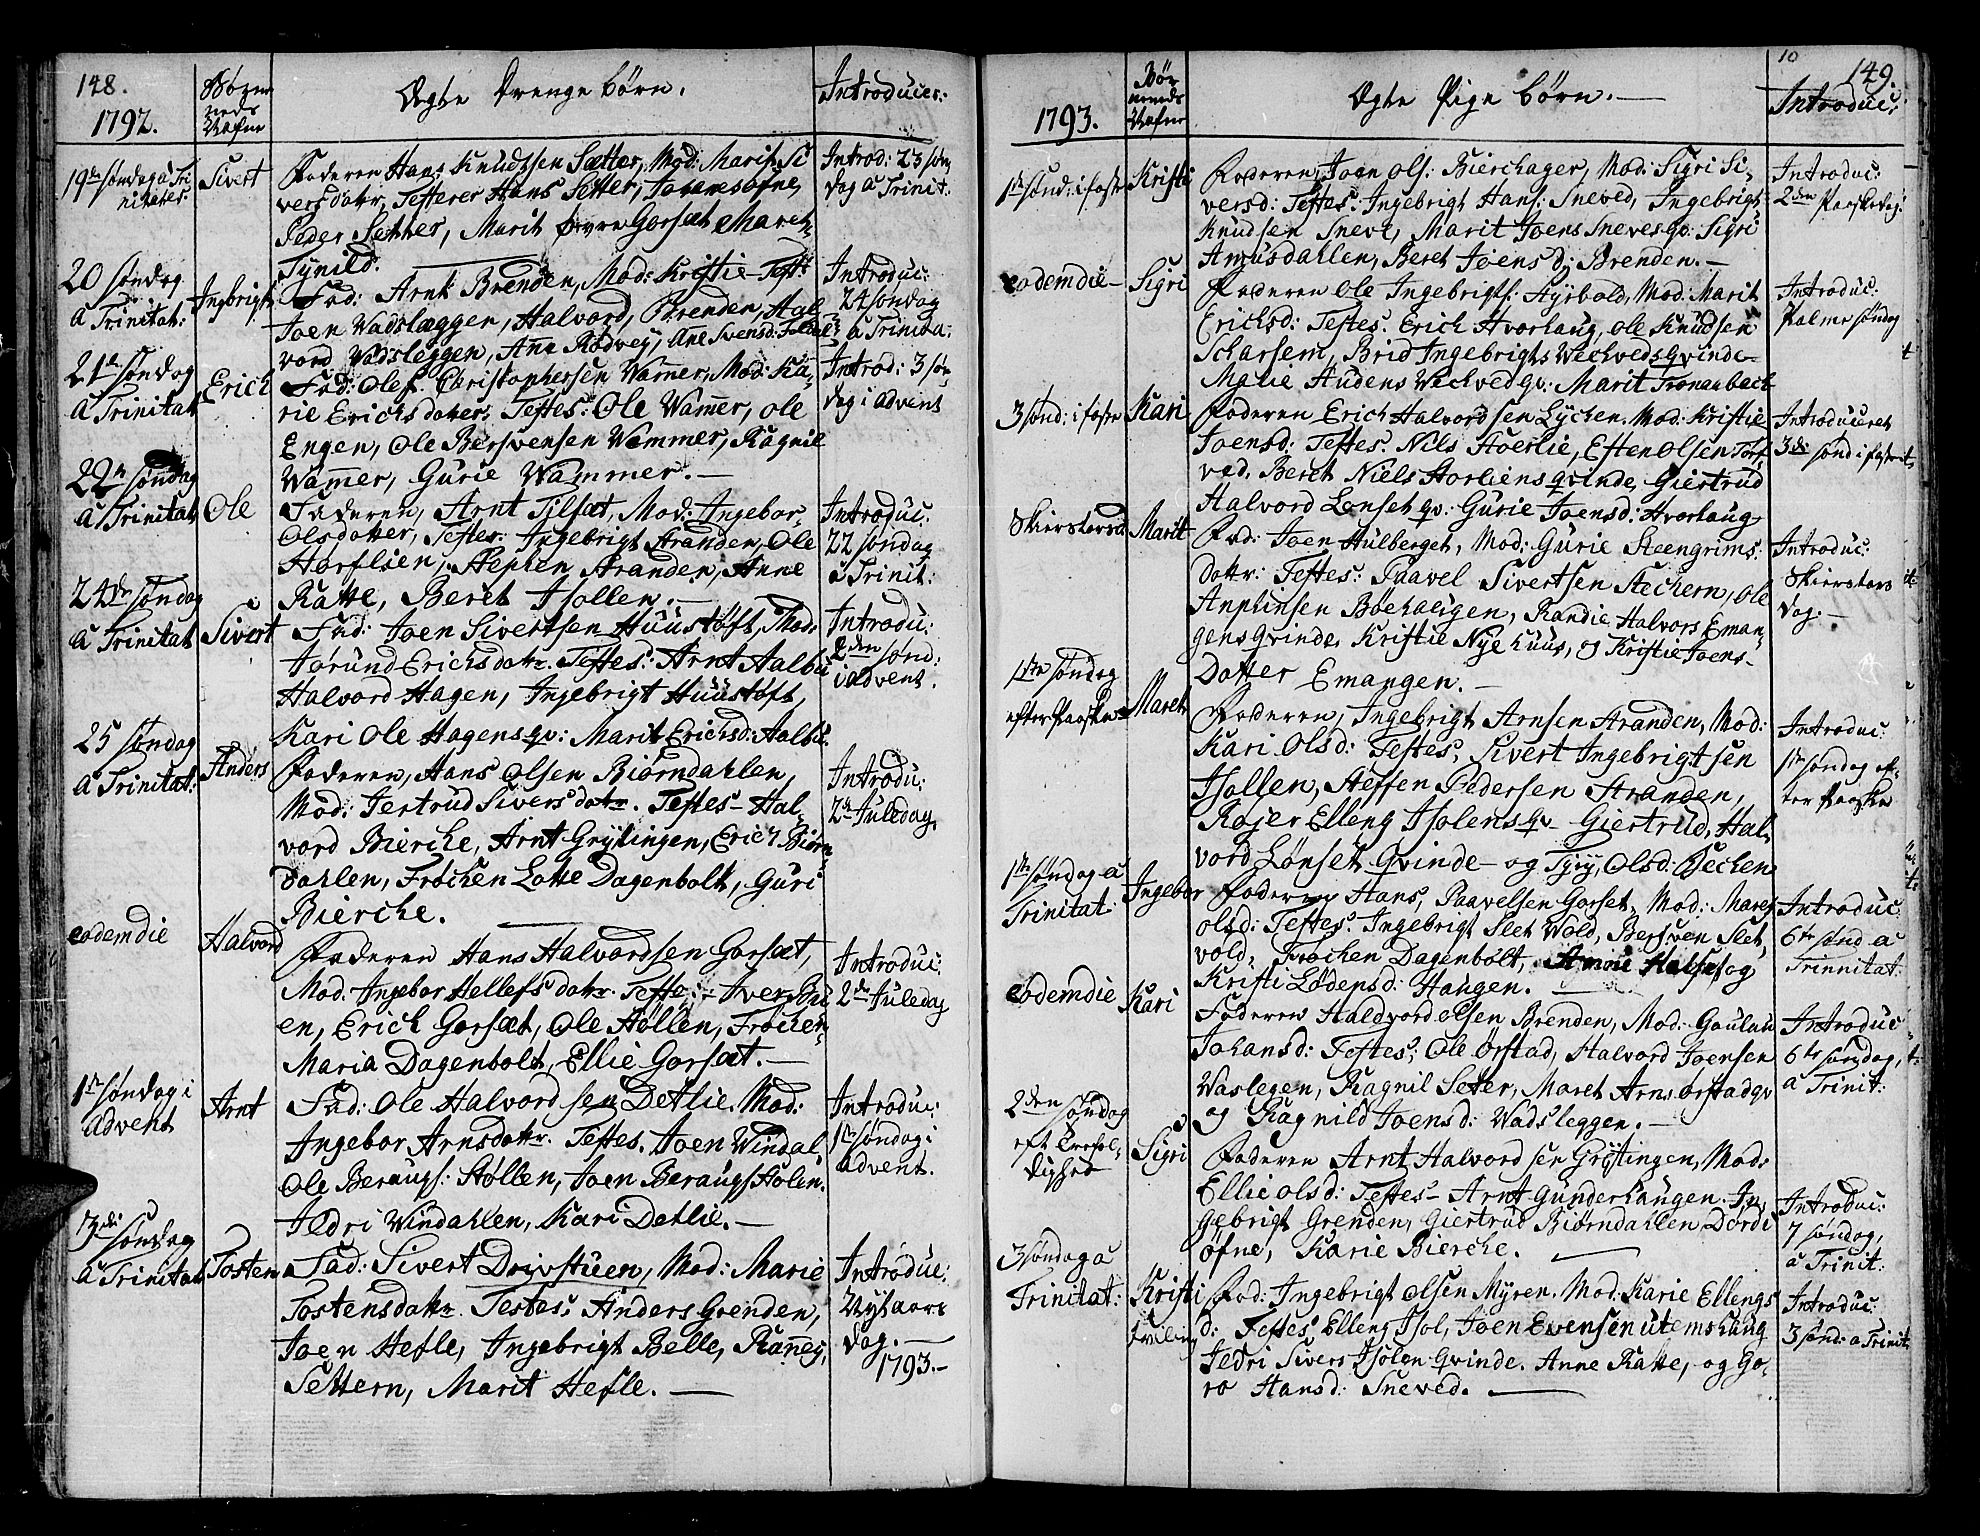 148.
1792.
Børne
neds
Nafne
Ægte Drenge børn.
Introduce:
19de søndag a Tri
nitates.
Sivert
Faderen Hans Knudtsen Sætter, Mod: Marit Si
versdatr, Testerer Hans Setter,
Peder Setter, Marit Øvre Gorsæt Maret
Tynild.
Introd: 23 søn
dag a Trinit:
20 søndag
a Trinitat:
Ingbrigt
Fad: Arnt Brenden, Mod: Kristie Test:
Joen Vadslæggen, Halvord, Brenden, Hal
vord Vadsleggen, Ane Rødvey, Ane Svensd:
Introduc:
24 søndag
a Trinita:
21de søndag
a Trinitat
Erich
Fad: Oles Christophersen Wamer, Mod: Ka
rie Erichsdatter, Testes: Ole Wamer, Ole
Engen, Ole Berswensen Wammer, Ragnil
Wamer, Gurie Wammer.
Introd: 3 søn
dag i advent
22de søndag
a Trinitat
Ole
Faderen, Arnt Tilset, Mod: Ingebor
Olsdatter, Testes: Ingebrigt Stranden, Ole
Stephen Stranden, Anne
Katte, Beret Isollen.
Introduc:
22 søndag
a Trinit:
24de søndag
a Trinitat
Sivert
Fad: Joen Sivertsen Huustøft, Mod:
Jorund Erichsdatr. Testes: Arnt Aalbu
Halvord Hagen, Ingebrigt Huustøft,
Kari Ole Hagens qv: Marit Erichsd: Aalbu.
Introdu:
2den sønd:
i advent.
25 søndag
a Trinitat:
Anders
Faderen, Hans Olsen Biørndahlen,
Mod: Jertrud Siversdatr. Testes- Hal
vord Bierche, Arnt Grytingen, Erich Biørn
dahlen, Frøchen Lotte Dagenbolt, Guri
Bierche.
Introdu:
2de Juledag.
eodemdie
Halvord
Faderen Hans Halvordsen Gorset,
Mod: Ingebor Hellefsdatr. Teste: Iver Bu
en, Erich Gorset, Ole Hollen, Frøchen
Maria Dagenbolt, Ellie Gorset.
Introduc:
2de Juledag
1ste søndag i
advent
Arnt
Fad: Ole Halvordsen Detlie. Mod:
Ingebor Arnsdatr. Testes. Joen Windal,
Ole Beraugs: Hollen, Joen Beraugs Holen.
Sedri Windahlen, Kari Detlie.
Introduc:
1ste søndag i
advent.
3die søndag
a Trinitat
Tosten
Fad: Sivert Drivstuen, Mod: Marie
Tostensdatr. Testes: Anders Grenden,
Joen Hefle, Ingebrigt Belle, Raney,
Settern, Marit Hefle.
Introduc:
Nytaars
dag.
1793.
10
149.
1793.
Bør
nneds
Nafne
Ægte Pige børn.
Introduc:
1ste sønd: i faste
Kristi
Faderen, Joen Ols: Bierchager, Mod: Sigri Si-
versd: Testes: Ingebrigt Hans: Sneved, Ingebrigt
Knudsen Snevt, Marit Joens Sneves qv: Sigri
Amusdahlen, Beret Joensd: Brenden.
Introduc:
2den Paaskedag:
eodemdie
Sigri
Faderen Ole Ingebrigts: Hyrbold, Mod: Marit
Erichsd: Testes. Erich Hvorhaug, Ole Knudsen
Scharsem, Brid Ingebrigts Wechveds Qvinde
Malie Audens Wechved qv: Marit Tronanbach
Introduc:
Palme søndag
3 sønd: i faste
Kari
Faderen Erich Halvordsen Lychen, Mod: Kristie
Joensd: Testes. Nils Hoerlie, Esten Olsen Torf
ved. Beret Niels Horliens qvinde, Giertrud
Halvord Lonset qv: Gurie Joensd: Hvorhaug
Introduceret
3die sønd i faste
Skierstorsd
Marit
Fad: Joen Hulberget, Mod: Gurie Steengrims:
datr: Testes: Paavel Sivertsen Stechern, Ole
Anphinsen Bøehaugen, Randie Halvors Eman,
gens Qvinde, Kristie Nyehuus, og Kristie Joens
Datter Emangen.
Introduc:
Skierstors
dag.
1ste søndag
efter Paaske
Maret
Faderen, Ingebrigt Arnsen Stranden, Mod:
Kari Olsd: Testes, Sivert Ingebrigtsen
Isollen, Steffen Pedersen Stranden,
Rojer Elleng Isolens qv- Giertrud, Hal,
vord Lønset Qvinde- og Olsd:
Introduc:
1ste søndag ef-
ter Paaske
1ste søndag a
Trinitat:
Ingebor
Faderen Hans, Paavelsen Gorset, Mod: Maret
olsd: Testes: Ingebrigt Slet Wold, Bersven Slet
vold, Frøchen Dagenbolt, og
Kristi Lødensd: Haugen.
Introduc
6te sønd a
Trinnitat:
eodemdie
Kari
Faderen Haldvord olsen Brenden, Mod: Goulau
Johansd: Testes; Ole Ørstad, Halvord Joensen
Waslegen, Ragnil Seter, Maret Arns ørstad qv
og Ragnild Joensd: Wadsleggen.
Introduc
6te søndag,
a Trinit:
2den søndag
eft Trefol-
dighed
Sigri
Faderen Arnt Halvordsen Grytingen, Mod:
Ellie olsd: Testes- Arnt Gunderhaugen. In,
gebrigt Grenden, Giertrud Biørndahlen Dordi
øfne, Karie Bierche.
Introduc:
7 søndag,
a Trinit:
3 søndag a
Trinitat:
Kristi
tviling
Fad: Ingebrigt olsen Myren. Mod: Karie Ellengs
d: Testes, Elleng Isol, Joen Evensen utemshaug
Sedri Sivers Isolen Qvinde. Anne Katte, og Go-
ro Hansd: Sneved.
Introduc:
3 sønd: a Trinit: